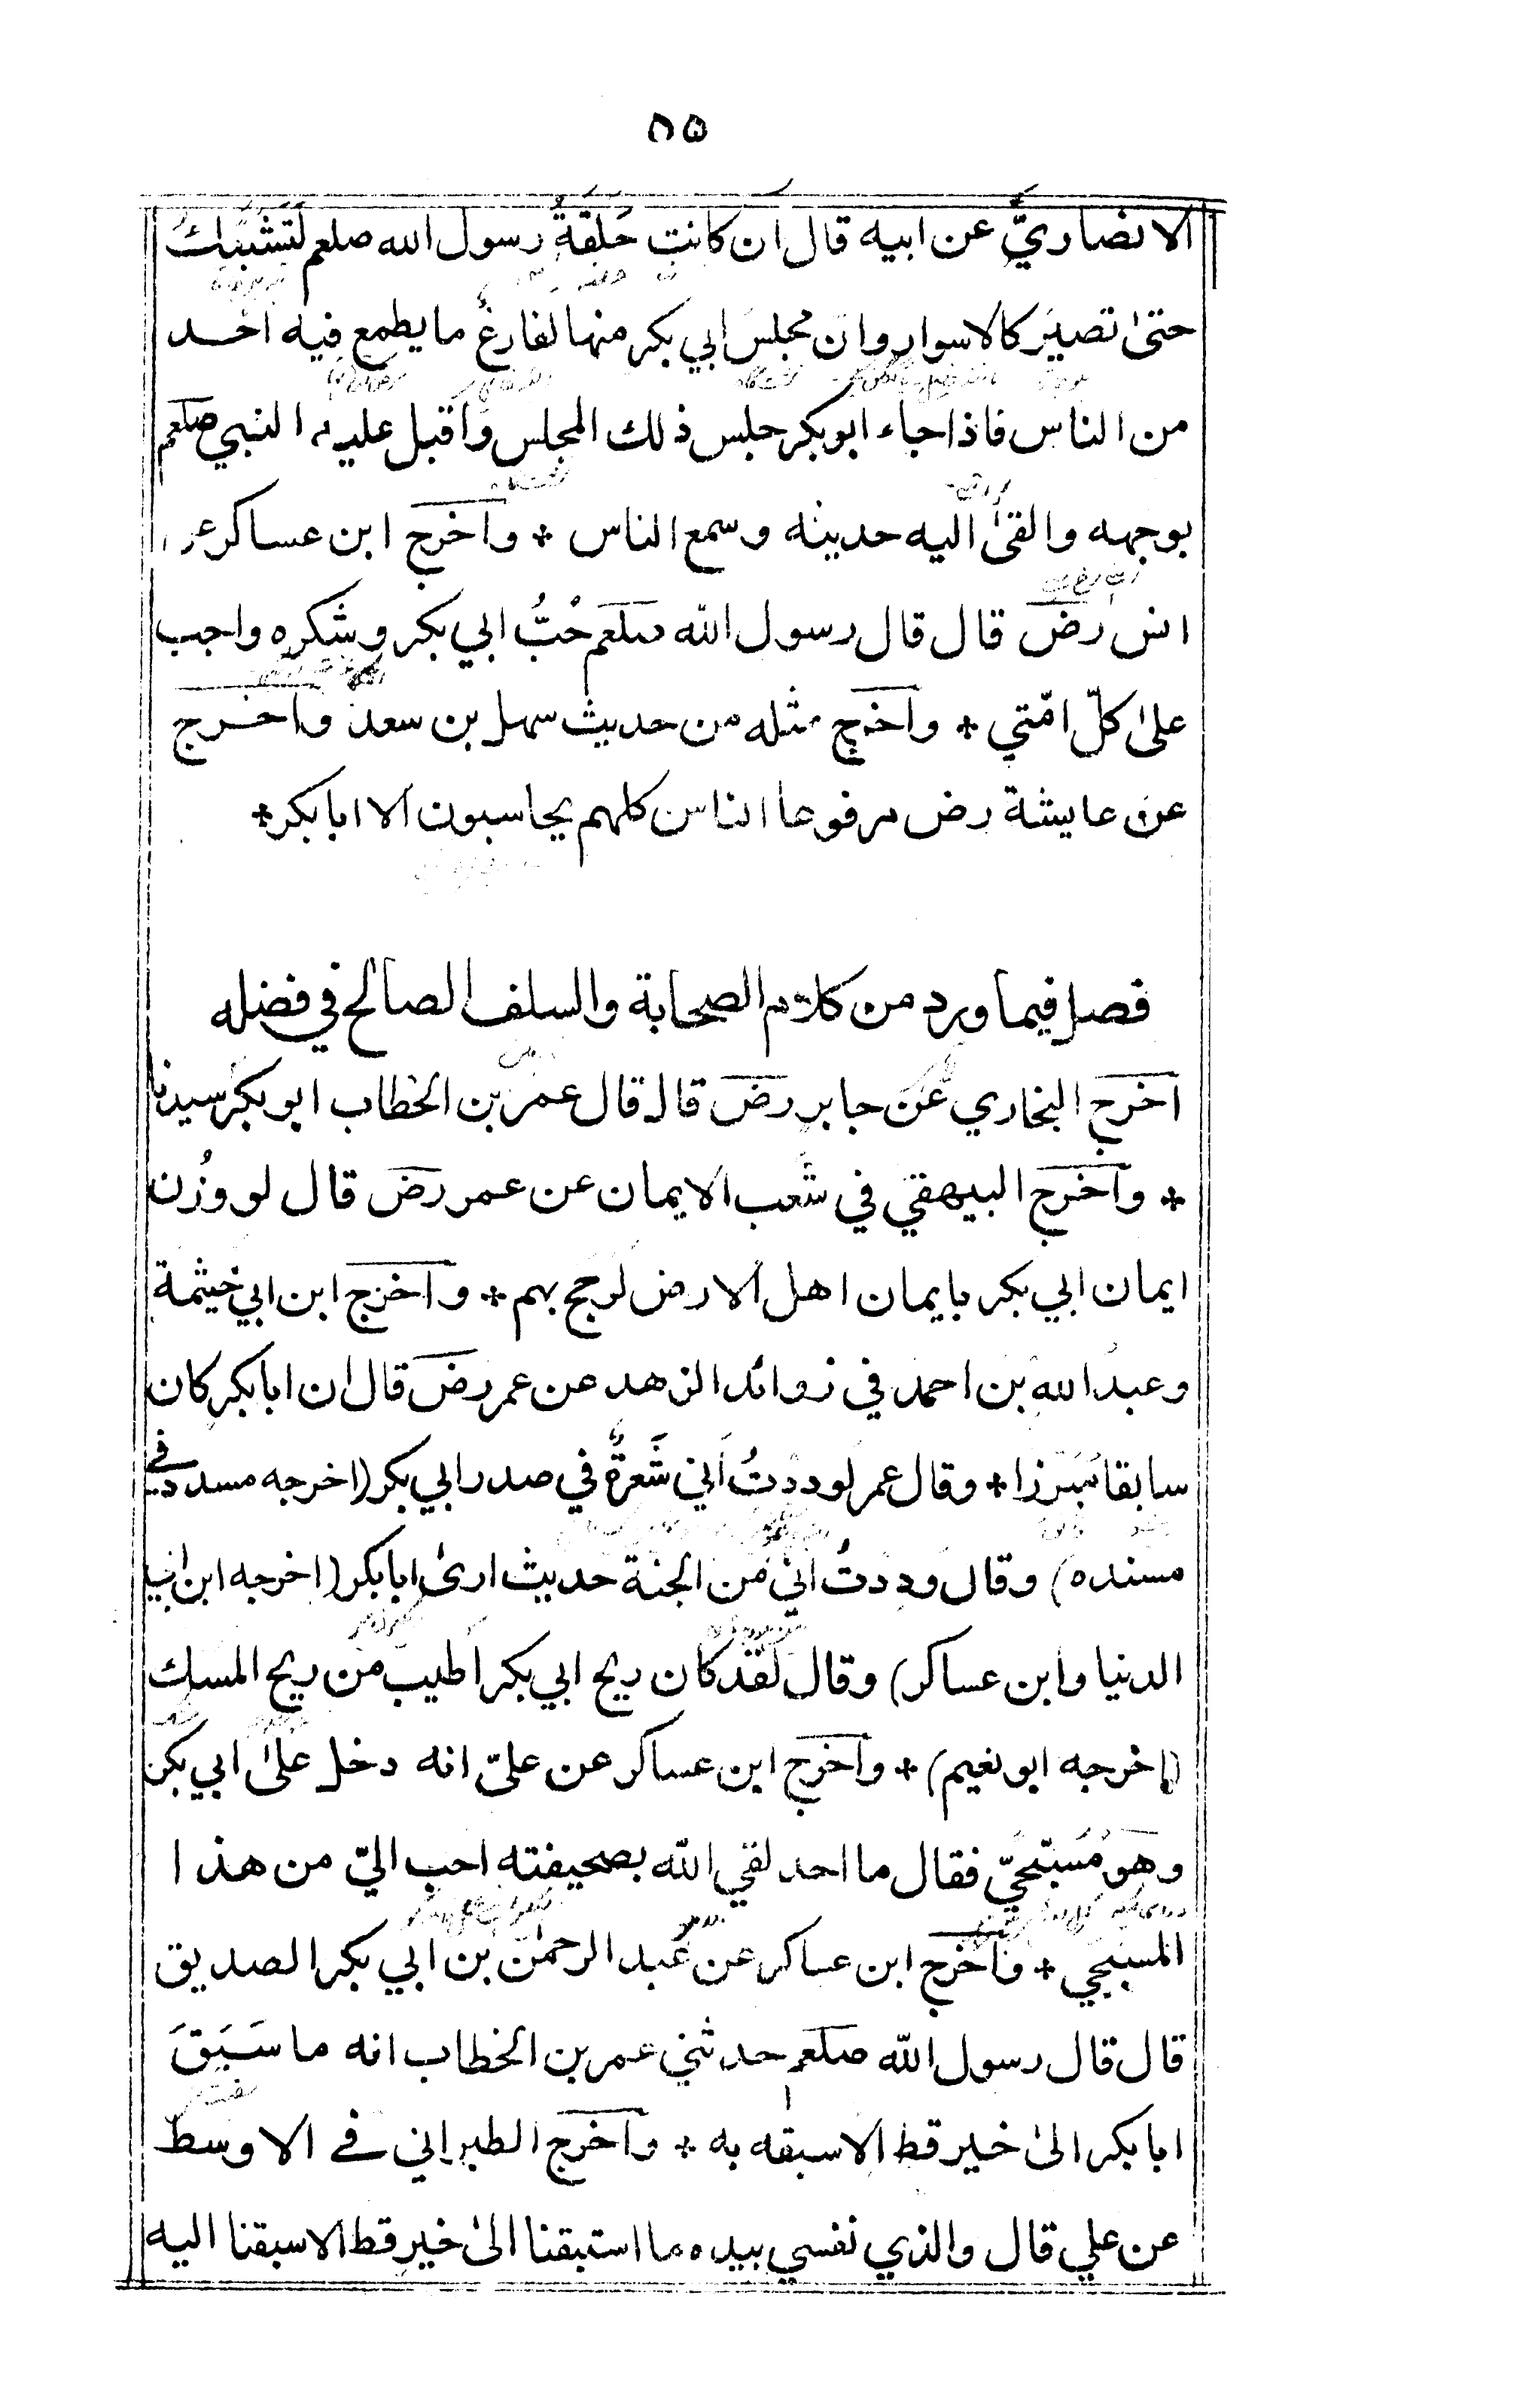 ٥٨
الانصاريّ عن ابيه قال ان كانت حَلقةُ رسول الله صلعم لَتَشَبّكُ
حتىٰ تصيرَ كالاسوار وان مجلسَ ابي بكر منها لفارغٌ ما يطمع فيه احد
من الناس فاذا جاء ابو بكر جلس ذلك المجلس واقبل عليه النبي صلعم
بوجهه والقىٰ اليه حديثه وسمع الناس * واخرج ابن عساكر عن
انس رض قال قال رسول الله صلعم حُبُّ ابي بكر وشكره واجب
علىٰ كلّ امّتي * واخرج مثله من حديث سهل بن سعد واخرج
عن عايشة رض مرفوعا الناس كلهم يحاسبون الا ابا بكر *
فصل فيما ورد من كلام الصحابة والسلف الصالح في فضله
اخرج البخاري عن جابر رض قال قال عمر بن الخطاب ابو بكر سيدنا
* واخرج البيهقي في شُعب الايمان عن عمر رض قال لو وُزن
ايمان ابي بكر بايمان اهل الارض لرجح بهم * واخرج ابن ابي خيثمة
وعبد الله بن احمد في زوائد الزهد عن عمر رض قال ان ابا بكر كان
سابقا مُبَرزا * وقال عمر لوددتُ اَني شَعرةٌ في صدر ابي بكر (اخرجه مسدد في
مسنده) وقال وددتُ انّي من الجنة حديث ارىٰ ابا بكر (اخرجه ابن ابي
الدنيا وابن عساكر) وقال لقد كان ريح ابي بكر اطيب من ريح المسك
(اخرجه ابو نعيم) * واخرج ابن عساكر عن عليّ انه دخل علىٰ ابي بكر
وهو مُسَجّيّ فقال ما احد لقي الله بصحيفته احب اليّ من هذا
المسجي * واخرج ابن عساكر عن عبد الرحمٰن بن ابي بكر الصديق
قال قال رسول الله صلعم حدثني عمر بن الخطاب انه ما سَبَقَ
ابا بكر الىٰ خير قط الا سبقه به * واخرج الطبراني في الاوسط
عن علي قال والذي نفسي بيده ما استبقنا الىٰ خير قط الا سبقنا اليه